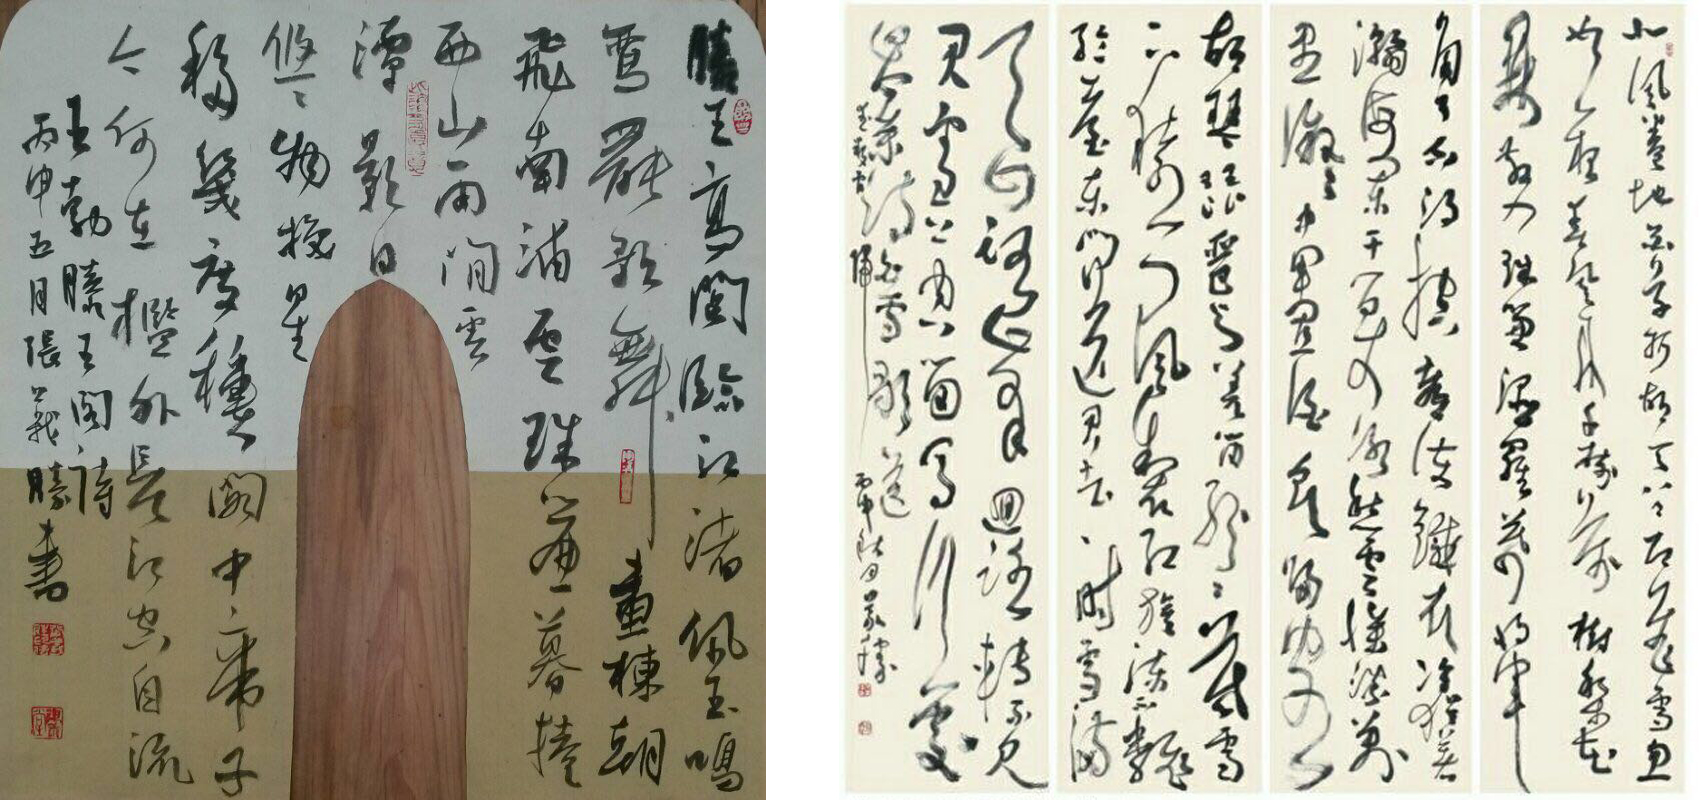 滕王高閣臨江渚佩玉鳴
鸞罷歌舞畫棟朝
飛南浦雲珠簾暮捲
西山雨閒雲
潭影日
悠々物換星
移幾度穐閣中帝子
今何在檻外長江空自流
王勃滕王閣詩
丙申五月張
勝書
北風卷地百草折胡天八月即飛雪忽
如一夜春風來千樹萬樹梨花
開散入珠簾濕羅幕將軍
角弓不得控都護鐵衣冷猶著
瀚海闌干百丈冰愁雲慘淡萬
里凝中軍置酒飲歸客
胡琴琵琶與羌笛紛々暮雪
下轅門風掣紅旗凍不翻
輪臺東門送君去時雪滿
天山路山迴路轉不見
君雪上空留馬行處
岑參詩白雪歌送
武判官歸
丙申秋月
勝